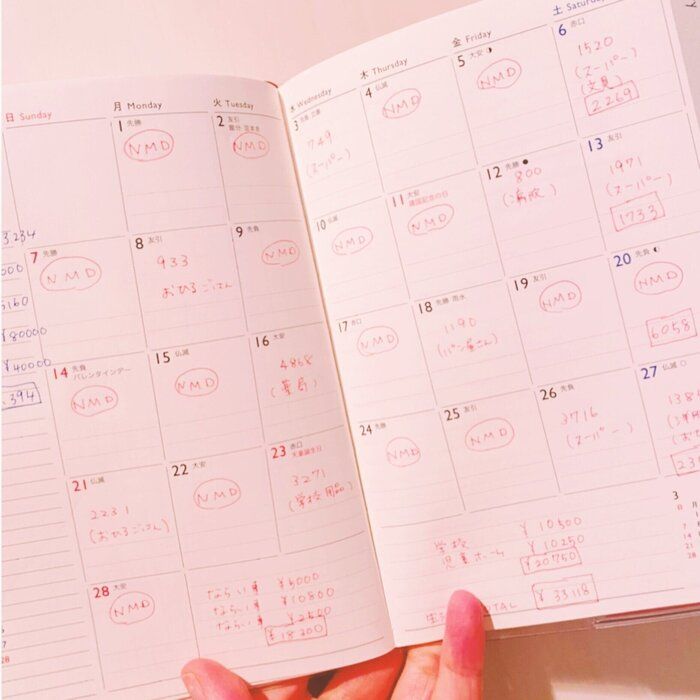 日 Sunday
月 Monday
火 Tuesday
水 Wednesday
木 Thursday
金 Friday
土 Saturday
1 先勝
NMD
2 友引
NMD
3 先負 立春
749
(スーパー)
4 仏滅
NMD
5 大安
NMD
6 赤口
1520
(スーパー)
2269
3234
000
5160
¥80000
¥40000
394
7 先勝
NMD
8 友引
933
おひるごはん
9 先負
NMD
10 仏滅
NMD
11 大安
建国記念の日
NMD
12 先勝
800
13 友引
1971
(スーパー)
1733
14 先負
バレンタインデー
NMD
15 仏滅
NMD
16 大安
4868
(薬局)
17 赤口
NMD
18 先勝 雨水
1190
(パン屋さん)
19 友引
NMD
20 先負
NMD
6058
21 仏滅
2231
(おひるごはん)
22 大安
NMD
23 赤口
天皇誕生日
3271
(学校用品)
24 先勝
NMD
25 友引
NMD
26 先負
3716
(スーパー)
27 仏滅
138
28 大安
NMD
ならい事 ¥5000
ならい事 ¥10800
ならい事 ¥2500
¥18300
学校 ¥10500
児童ホーム ¥10250
¥20750
TOTAL ¥33118
3
日 月
7
14
21
28